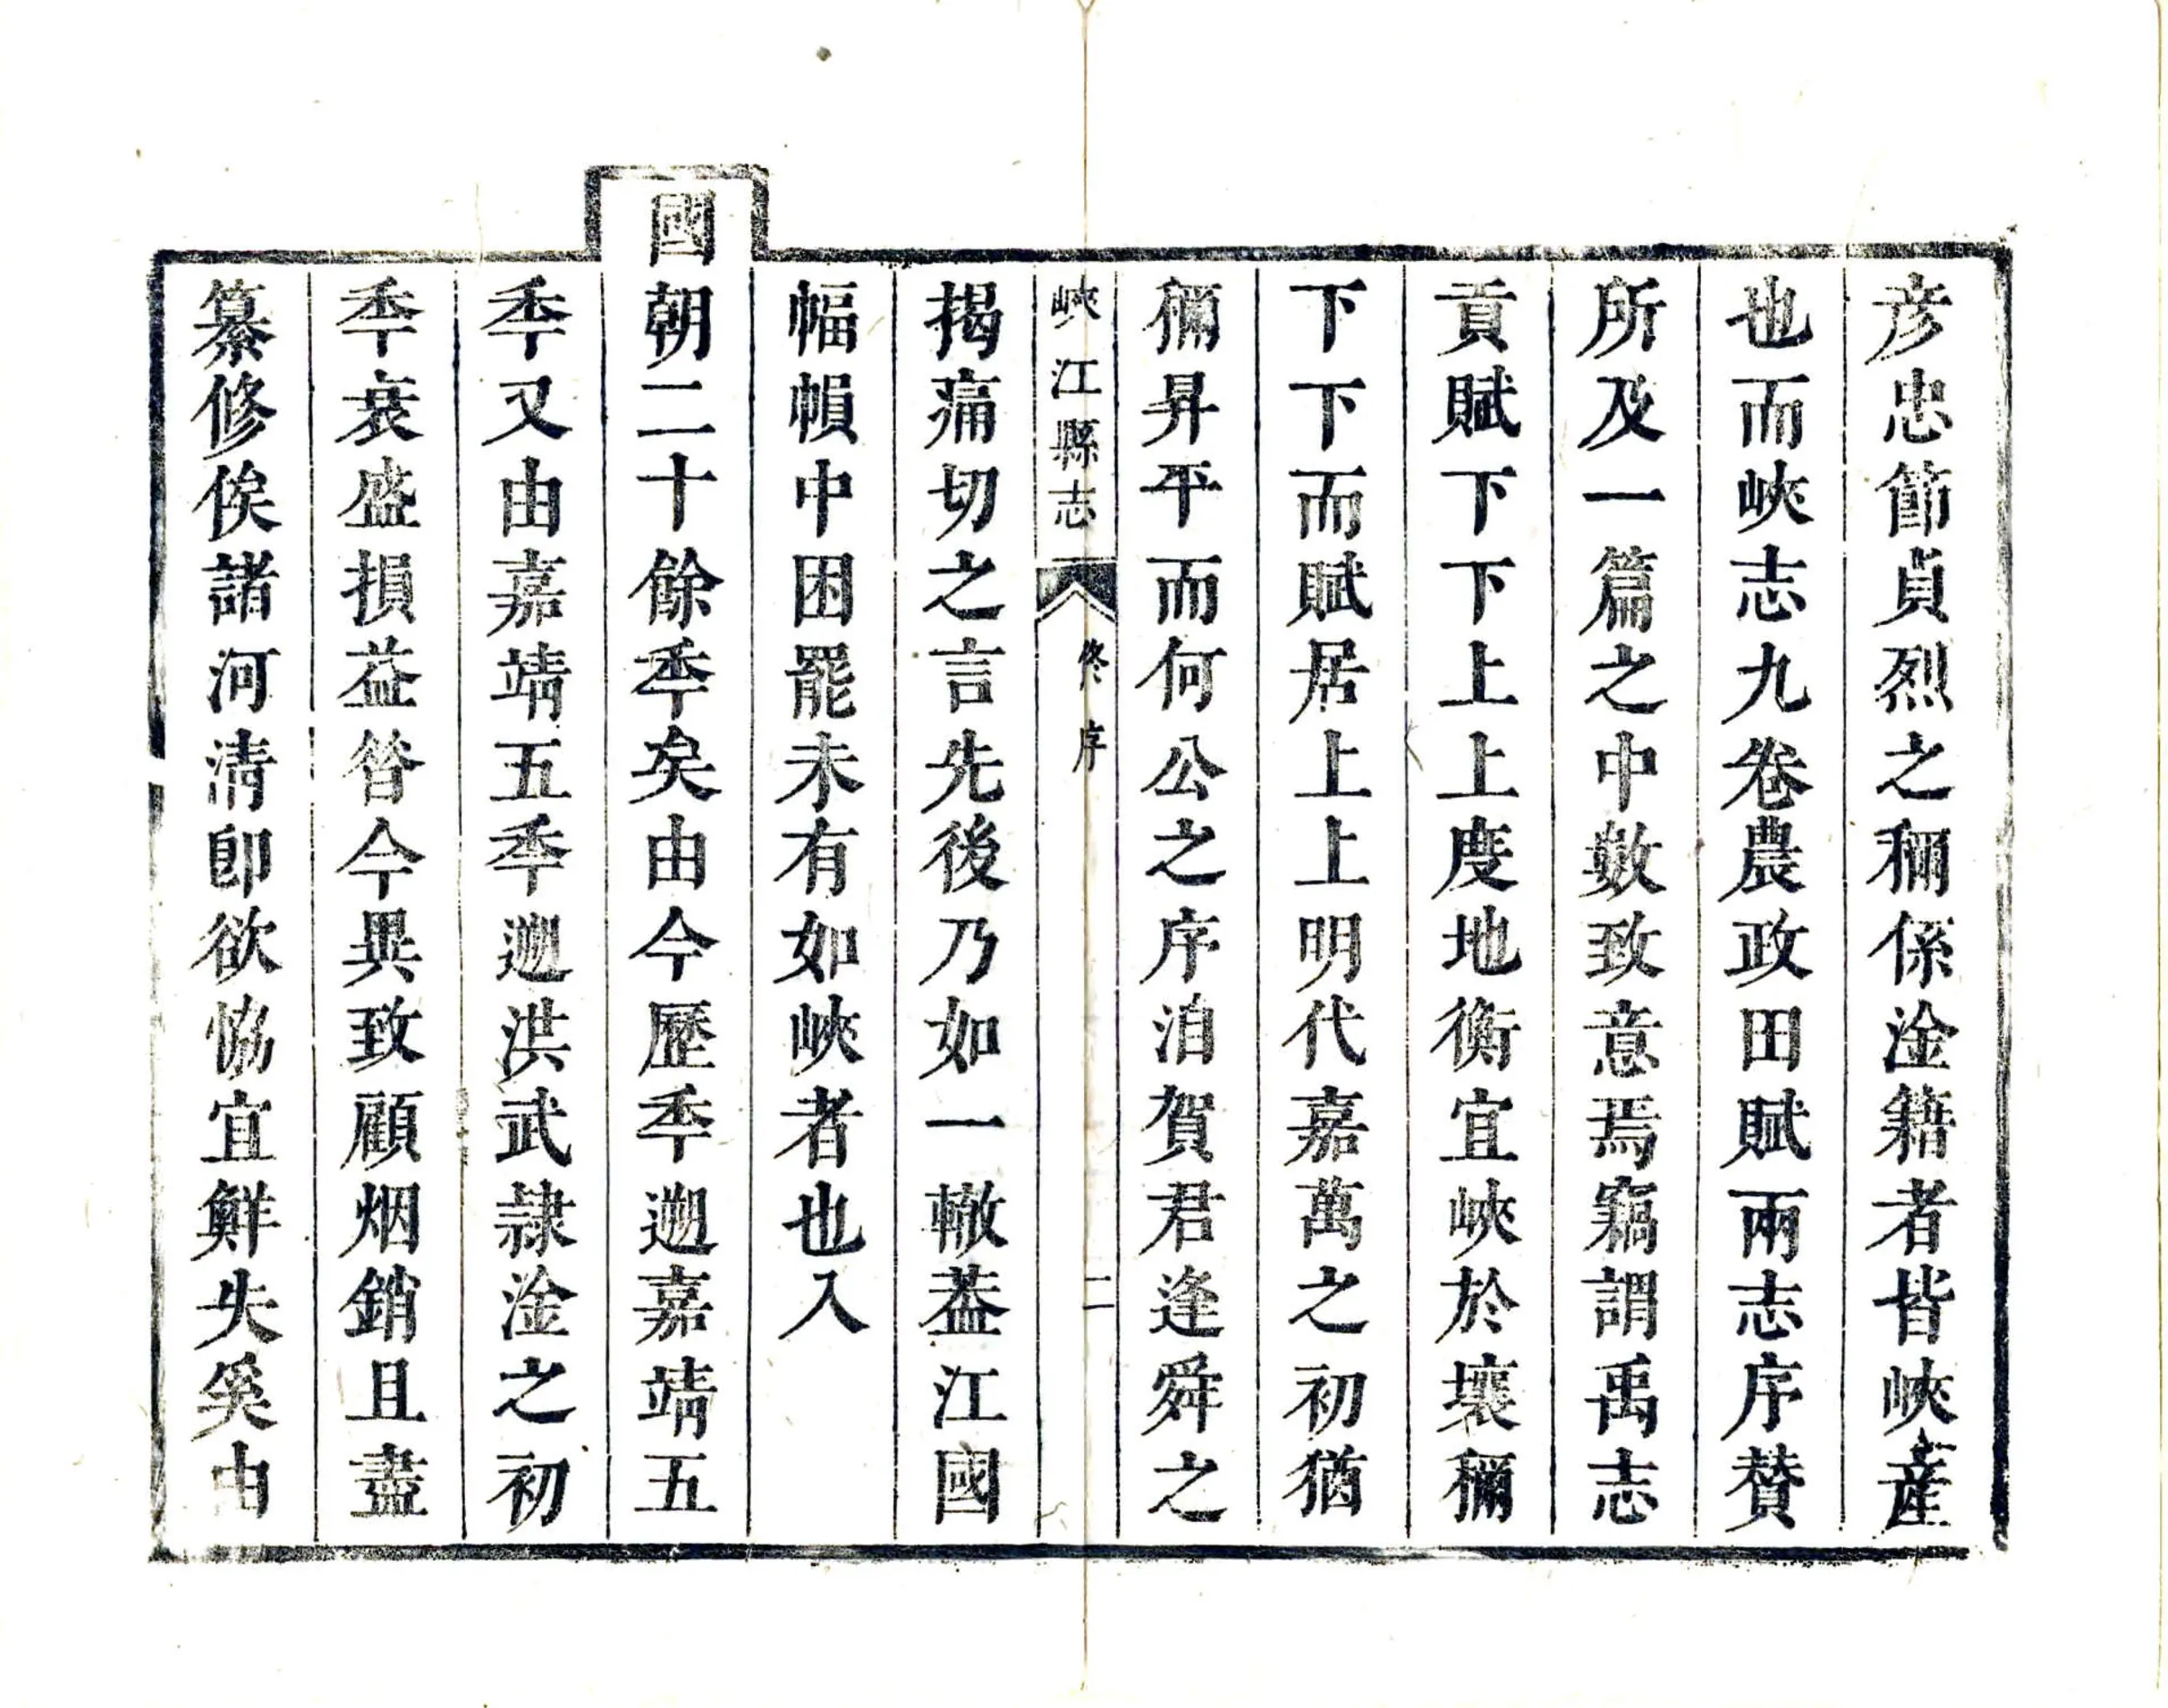 彦忠節貞烈之稱係淦籍者皆峽產
也而峽志九卷農政田賦兩志序贊
所及一篇之中數致意焉竊謂禹志
貢賦下下上上度地衡宜峽於壤稱
下下而賦居上上明代嘉萬之初猶
稱昇平而何公之序洎賀君逢舜之
峽江縣志 修序 二
揭痛切之言先後乃如一轍葢江國
幅幀中困罷未有如峽者也入
國朝二十餘秊矣由今歷秊遡嘉靖五
秊又由嘉靖五秊遡洪武隷淦之初
秊衰盛損益昝今異致顧烟銷且盡
纂修俟諸河清卽欲恊宜鮮失奚由